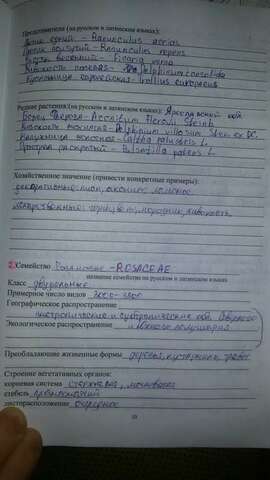 Представители (на русском и латинском языках):
Лютик едкий - Ranunculus acris
Лютик ползучий - Ranunculus repens
Чистяк весенний - Ficaria verna
Живокость полевая - Delphinium consolida
Купальница европейская - Trollius europaeus
Редкие растения (на русском и латинском языках): Ярославской обл.
Борец Флерова - Aconitum Flerovii Steinb
Живокость мохнатая - Delphinium villosum Stev ex DC.
Калужница болотная - Caltha palustris L.
Прострел раскрытый - Pulsatilla patens L.
Хозяйственное значение (привести конкретные примеры):
декоративные: пион,
лекарственные: горицвет, живокость
2. Семейство Розоцветные - ROSACEAE
название семейства на русском и латинском языках
Класс двудольные
Примерное число видов 3000-
Географическое распространение
и субтропические обл. Северного
Экологическое распространение полушария
Преобладающие жизненные формы деревья, кустарники, травы
Строение вегетативных органов:
корневая система стержневая, мочковатая
стебель
листорасположение очередное